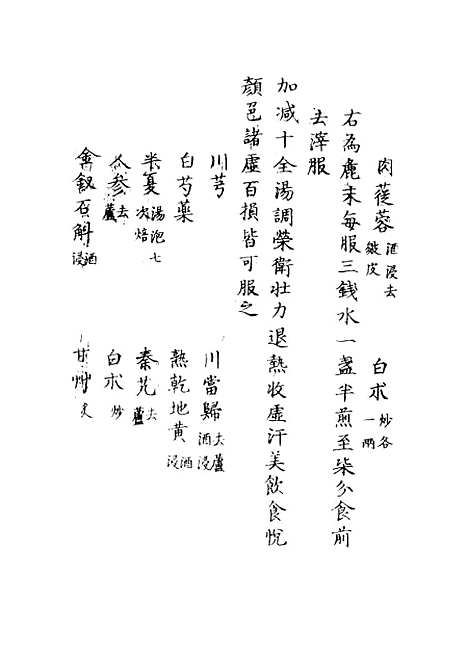 肉蓯蓉 酒浸去皴皮 白朮 炒各一兩
右為麁末每服三錢水一盞半煎至柒分食前
去滓服
加减十全湯調榮衛壯力退熱收虛汗美飲食悅
顏色諸虛百損皆可服之
川芎 川當歸 去蘆酒浸
白芍藥 熟乾地黃 酒浸
半夏 湯泡七次焙 秦艽 去蘆
人參 去蘆 白朮 炒
金釵石斛 酒浸 甘草 炙